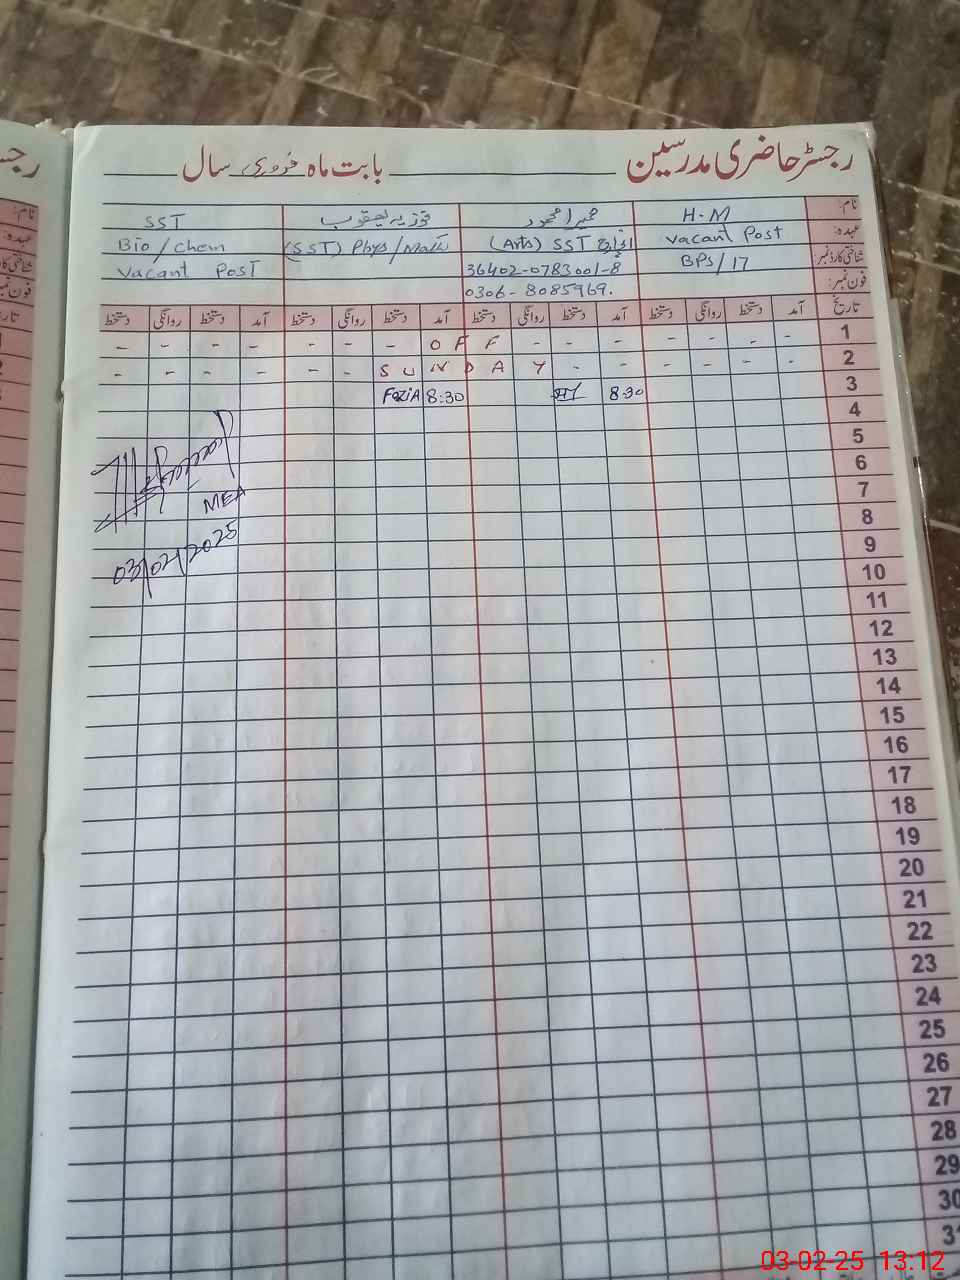 رجسٹر حاضری مدرسین بابت ماہ فروری سال
نام: H.M حمیرا محمود فوزیہ یعقوب SST
عہدہ: Vacant Post انچارج SST (Arts) (SST) Phys/Math Bio/Chem
شناختی کارڈ نمبر: BPS/17 36402-0783001-8 Vacant Post
فون نمبر: 0306-8085969.
تاریخ آمد دستخط روانگی دستخط آمد دستخط روانگی دستخط آمد دستخط روانگی دستخط آمد دستخط روانگی دستخط
1 - - - - - - O F F - - - - - - -
2 - - - - - - S U N D A Y - - - - - -
3 8:30 8:30 FoziA
4
5
6
7
MEA
8
9
03/02/2025
10
11
12
13
14
15
16
17
18
19
20
21
22
23
24
25
26
27
28
29
30
31
03-02-25 13:12